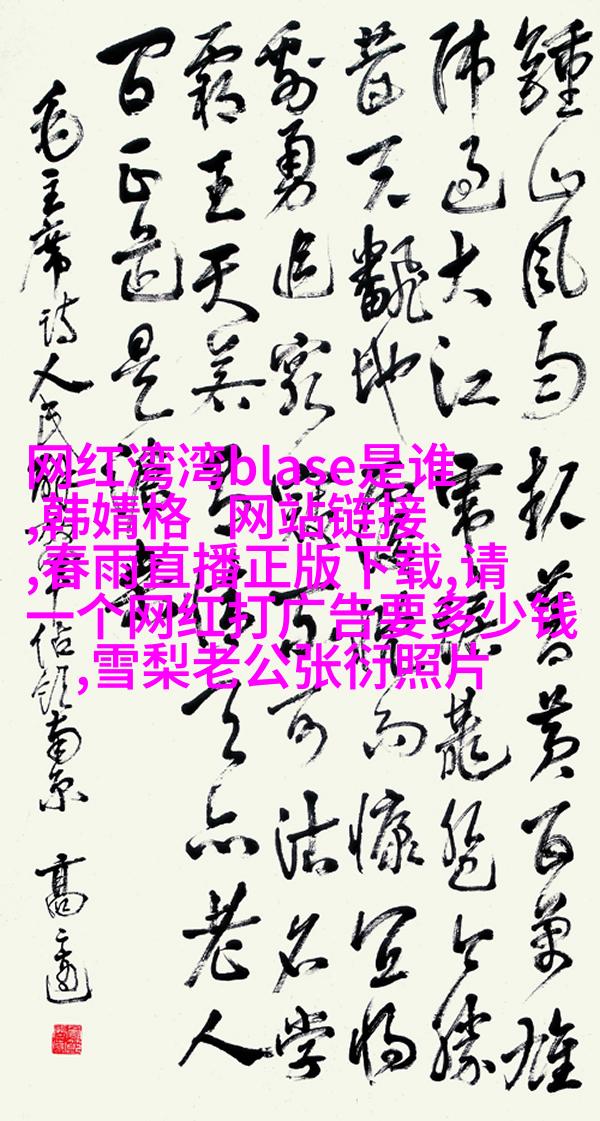 鍾山风雨起苍黄百万雄
师过大江虎踞龙盘今胜
昔天飜地覆慨而慷宜将
剩勇追穷寇不可沽名学
霸王天若有情天亦老人
间正道是沧桑
毛主席诗人民解放军占领南京
网红湾湾blase是谁
,韩婧格 网站链接
,春雨直播正版下载,请
一个网红打广告要多少钱
,雪梨老公张衍照片